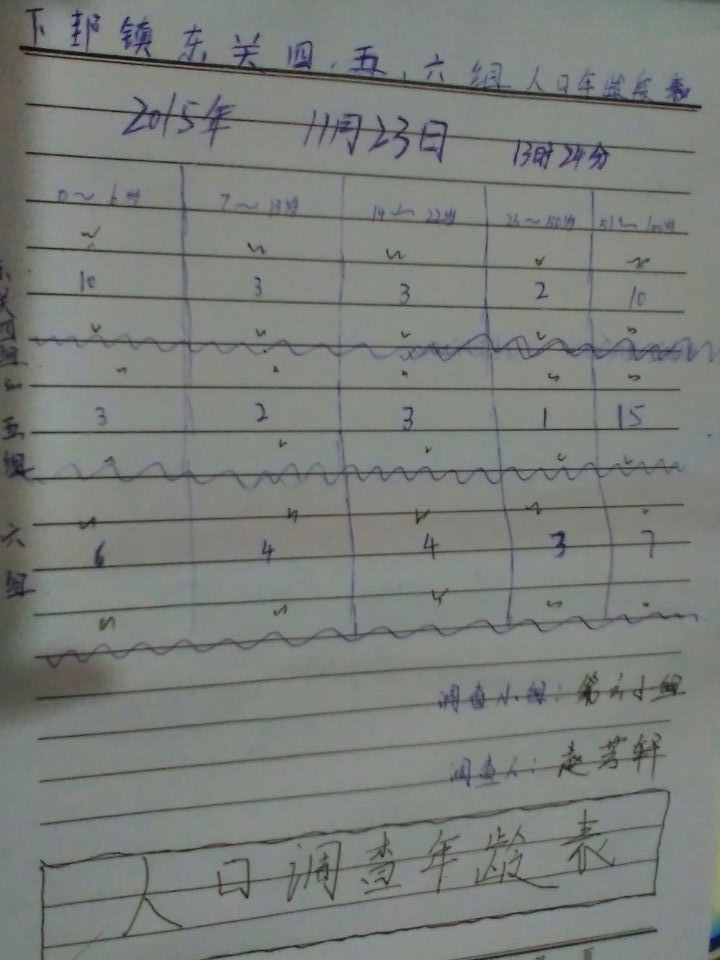 下邽镇东关四、五、六组人口年龄段表
2015年 11月23日 13时24分
0～6岁 7～13岁 14～22岁 23～50岁 51～100岁
东关四组 10 3 3 2 10
五组 3 2 3 1 15
六组 6 4 4 3 7
调查小组：第六小组
调查人：赵芳轩
人口调查年龄表